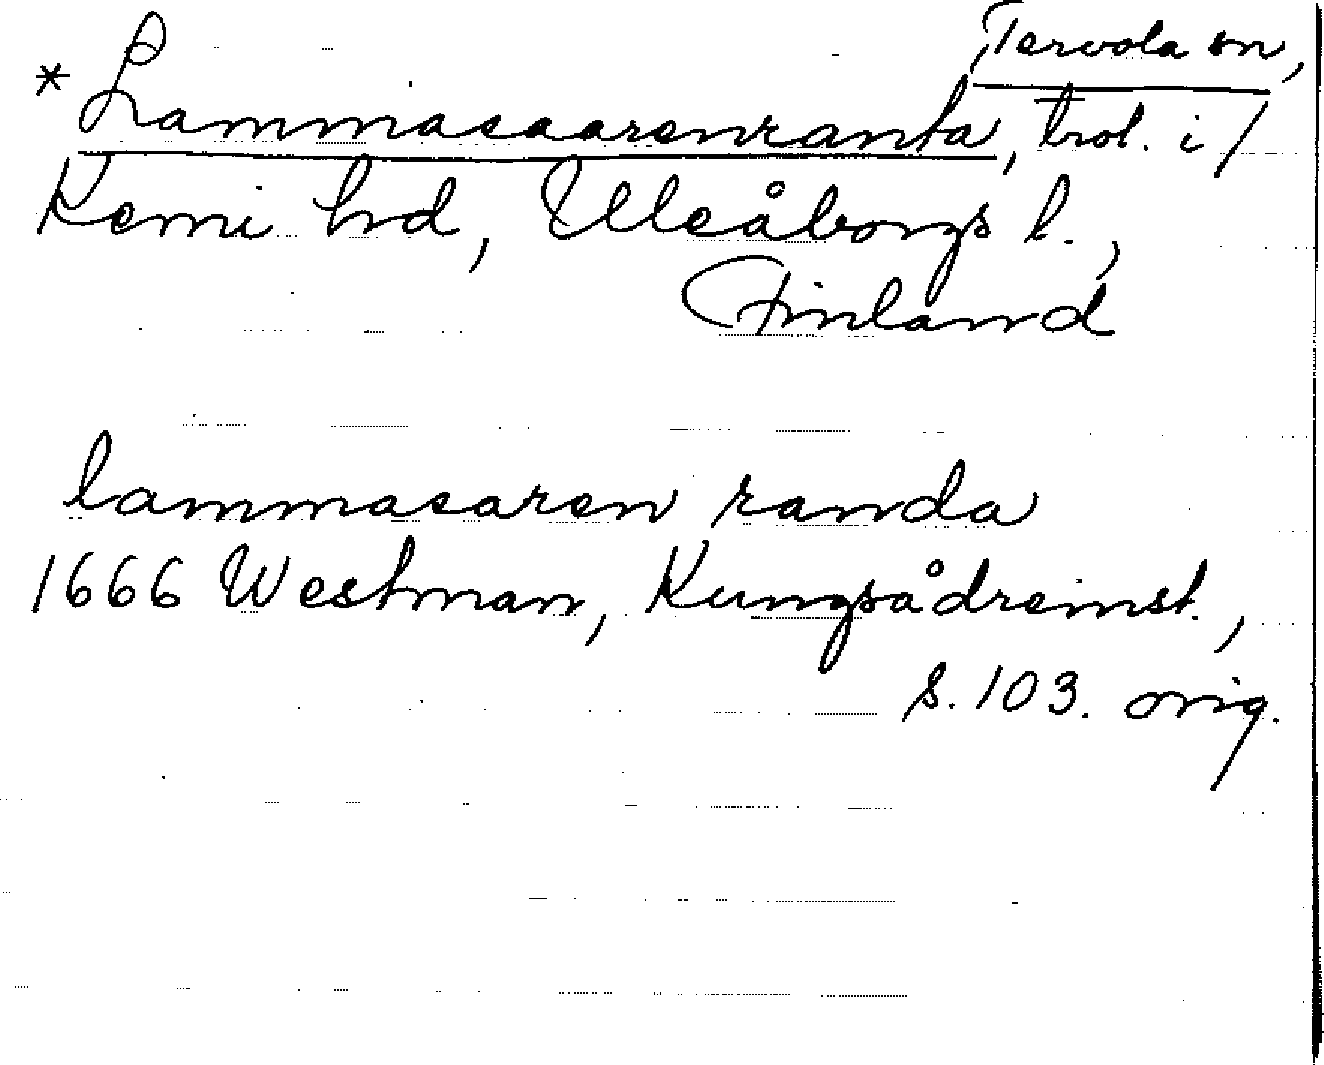 Tervola sn,
* Lammasaarenranta, trol. i /
Kemi hd, Uleåborgs l.,
Finland
lammasaren randa
1666 Westman, Kungsådreinst.,
s. 103. orig.